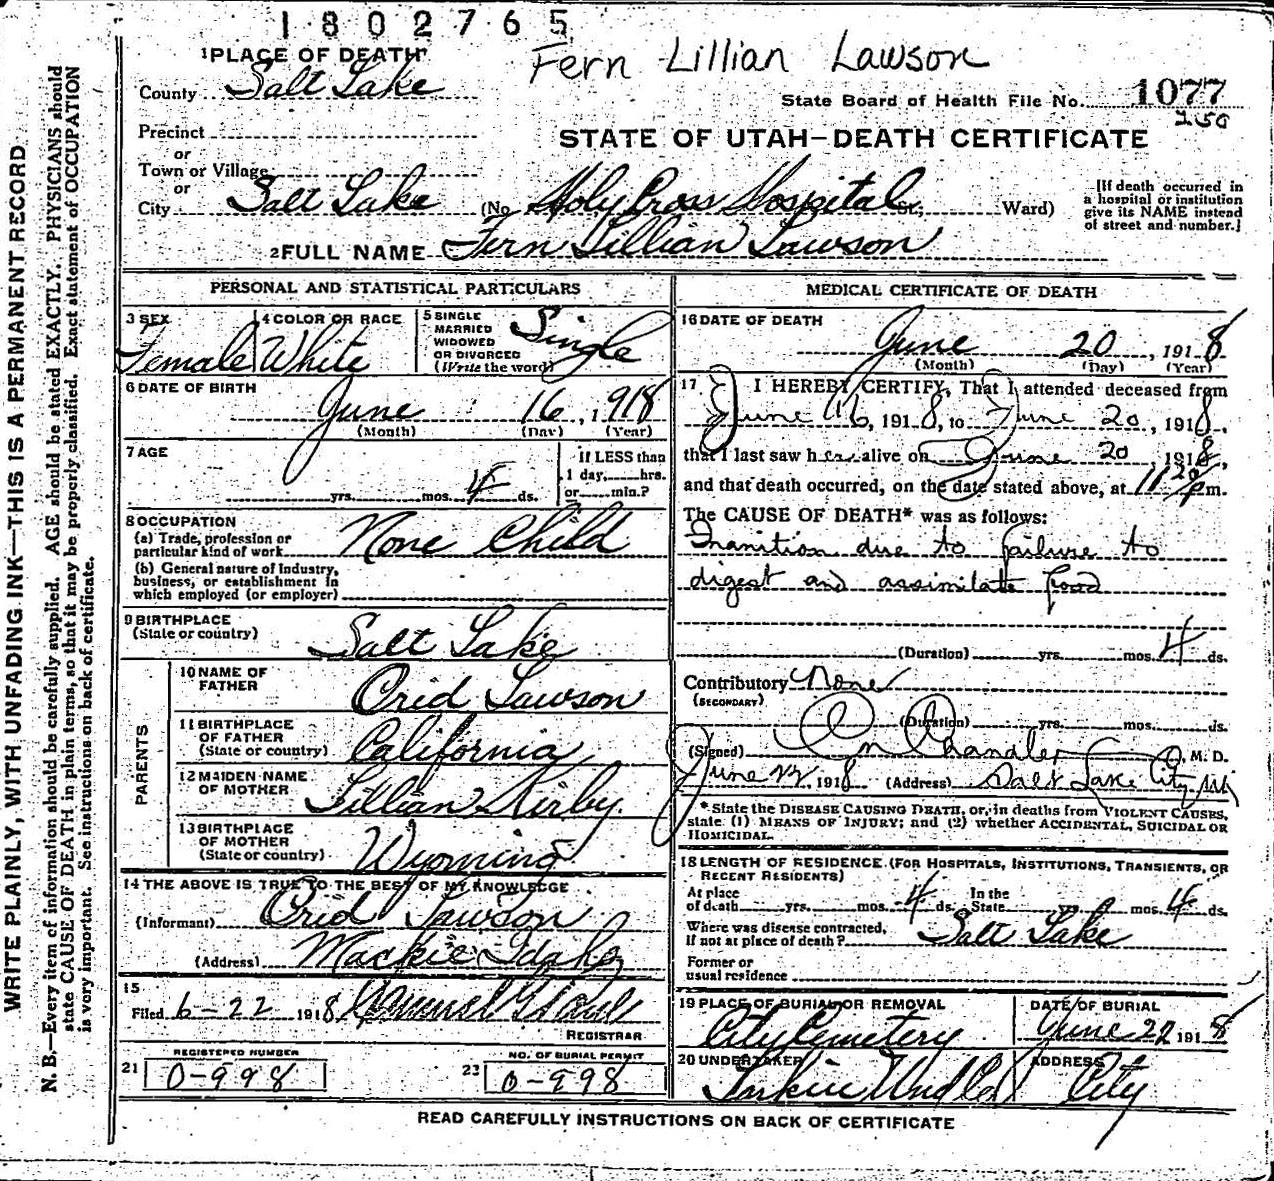 1802765
Fern Lillian Lawson
1 PLACE OF DEATH
County Salt Lake
State Board of Health File No. 1077
250
Precinct
or
STATE OF UTAH—DEATH CERTIFICATE
Town or Village
or
City Salt Lake (No. Holy Cross Hospital St.; Ward)
[If death occurred in a hospital or institution give its NAME instead of street and number.]
2 FULL NAME Fern Lillian Lawson
PERSONAL AND STATISTICAL PARTICULARS
3 SEX Female
4 COLOR OR RACE White
5 SINGLE MARRIED WIDOWED OR DIVORCED (Write the word) Single
6 DATE OF BIRTH
June 16, 1918
(Month) (Day) (Year)
7 AGE
yrs. mos. 4 ds.
if LESS than 1 day, hrs. or min.?
8 OCCUPATION
(a) Trade, profession or particular kind of work None Child
(b) General nature of Industry, business, or establishment in which employed (or employer)
9 BIRTHPLACE
(State or country) Salt Lake
PARENTS
10 NAME OF FATHER Orid Lawson
11 BIRTHPLACE OF FATHER (State or country) California
12 MAIDEN NAME OF MOTHER Lillian Kirby
13 BIRTHPLACE OF MOTHER (State or country) Wyoming
14 THE ABOVE IS TRUE TO THE BEST OF MY KNOWLEDGE
(Informant) Orid Lawson
(Address) Mackie Idaho
15
Filed 6-22 1918
REGISTRAR
REGISTERED NUMBER
21 0-998
NO. OF BURIAL PERMIT
23 0-998
MEDICAL CERTIFICATE OF DEATH
16 DATE OF DEATH
June 20, 1918
(Month) (Day) (Year)
17 I HEREBY CERTIFY, That I attended deceased from
June 16, 1918, to June 20, 1918,
that I last saw her alive on June 20, 1918,
and that death occurred, on the date stated above, at 11 20 p m.
The CAUSE OF DEATH* was as follows:
Inanition due to failure to
digest and assimilate food
(Duration) yrs. mos. 4 ds.
Contributory None
(SECONDARY)
(Duration) yrs. mos. ds.
(Signed) Chandler M. D.
June 22, 1918 (Address) Salt Lake City
*State the DISEASE CAUSING DEATH, or, in deaths from VIOLENT CAUSES, state (1) MEANS OF INJURY; and (2) whether ACCIDENTAL, SUICIDAL OR HOMICIDAL.
18 LENGTH OF RESIDENCE (FOR HOSPITALS, INSTITUTIONS, TRANSIENTS, OR RECENT RESIDENTS)
At place of death yrs. mos. 4 ds. In the State yrs. mos. 4 ds.
Where was disease contracted, if not at place of death? Salt Lake
Former or usual residence
19 PLACE OF BURIAL OR REMOVAL
City Cemetery
DATE OF BURIAL
June 22 1918
20 UNDERTAKER
ADDRESS
City
READ CAREFULLY INSTRUCTIONS ON BACK OF CERTIFICATE
WRITE PLAINLY, WITH UNFADING INK—THIS IS A PERMANENT RECORD
N. B.—Every item of information should be carefully supplied. AGE should be stated EXACTLY. PHYSICIANS should
state CAUSE OF DEATH in plain terms, so that it may be properly classified. Exact statement of OCCUPATION
is very important. See instructions on back of certificate.